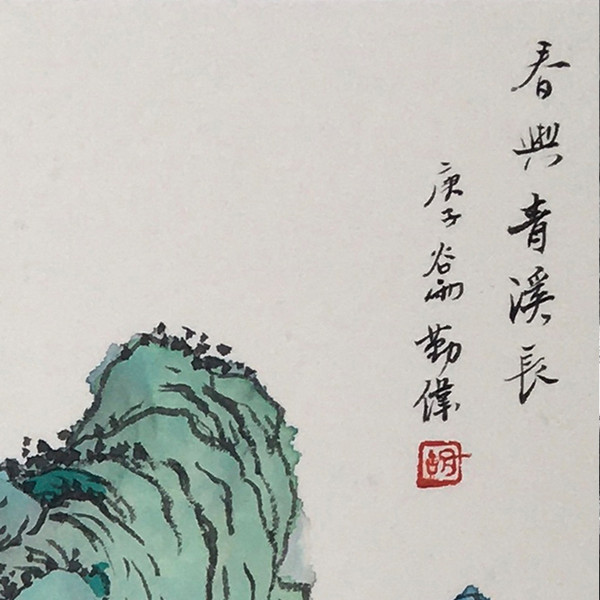 春與青溪長
庚子谷雨勤偉
胡